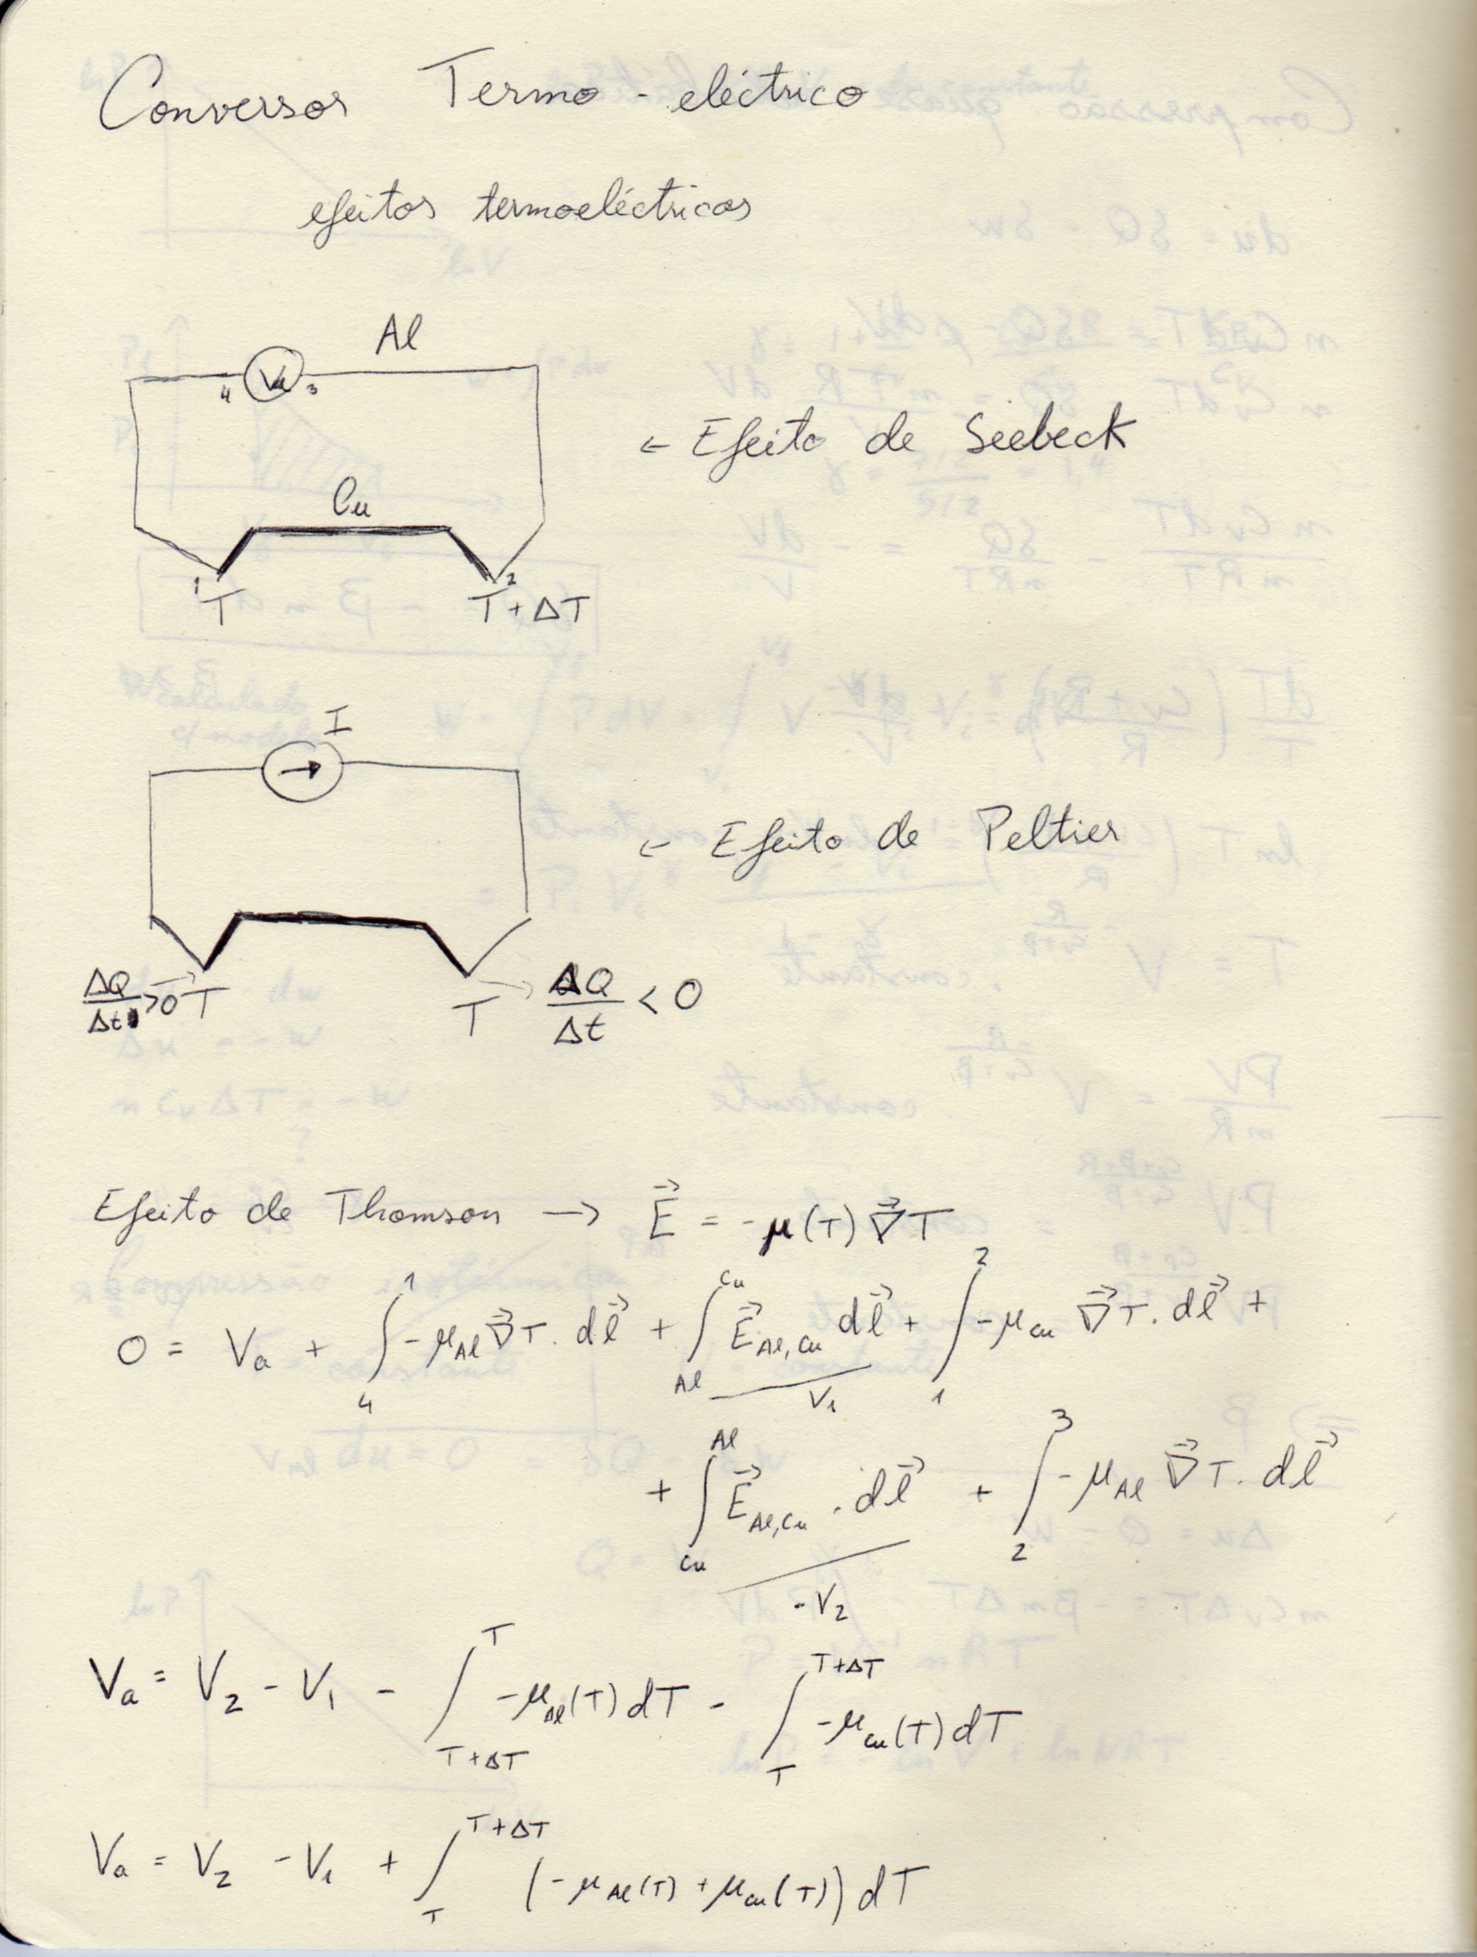 Conversor Termo-eléctrico
efeitos termoeléctricos
Al
4 Va 3
← Efeito de Seebeck
Cu
1 2
T T+ΔT
I
← Efeito de Peltier
ΔQ/Δt >0 T T → ΔQ/Δt < 0
Efeito de Thomson → E⃗ = -μ(T) ∇⃗T
0 = Va + ∫₄¹ -μAl ∇⃗T. dl⃗ + ∫Al^Cu E⃗Al,Cu dl⃗ + ∫₁² -μCu ∇⃗T. dl⃗ +
V1
+ ∫Cu^Al E⃗Al,Cu . dl⃗ + ∫₂³ -μAl ∇⃗T. dl⃗
-V2
Va = V2 - V1 - ∫_{T+ΔT}^{T} -μAl(T) dT - ∫_{T}^{T+ΔT} -μCu(T) dT
Va = V2 - V1 + ∫_{T}^{T+ΔT} (-μAl(T) + μCu(T)) dT